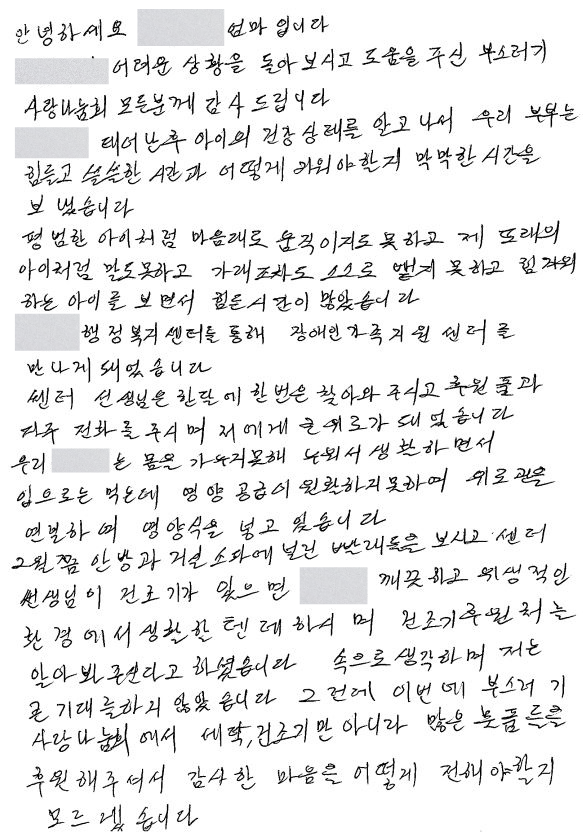 안녕하세요 엄마 입니다
어려운 상황을 돌아 보시고 도움을 주신 부스러기
사랑나눔회 모든분께 감사 드립니다
태어난후 아이의 건강상태를 알고 나서 우리 부부는
힘들고 쓸쓸한 시간과 어떻게 키워야할지 막막한 시간을
보냈습니다
평범한 아이처럼 마음대로 움직이지도 못하고 제 또래의
아이처럼 말도못하고 가래조차도 스스로 뱉지 못하고 힘겨워
하는 아이를 보면서 힘든시간이 많았습니다
행정복지센터를 통해 장애인가족지원 센터를
만나게 되었습니다
쎈터 선생님은 한달에 한번은 찾아와 주시고 후원 품과
자주 전화를 주시며 저에게 큰위로가 되었습니다
우리 는 몸을 가누지못해 누워서 생활하면서
입으로는 먹는데 영양 공급이 원활하지못하여 위로관을
연결하여 영양식을 넣고 있습니다
2월쯤 안방과 거실 소파에 널린 빨래들을 보시고 센터
썬생님이 건조기가 있으면 깨끗하고 위생적인
환경에서 생활할텐데 하시며 건조기후원처는
알아봐주신다고 하셨습니다 속으로 생각하며 저는
큰기대를하지 않았습니다 그런데 이번에 부스러기
사랑나눔회에서 세탁,건조기만 아니라 많은 물품들을
후원해주셔서 감사한 마음을 어떻게 전해야할지
모르겠습니다